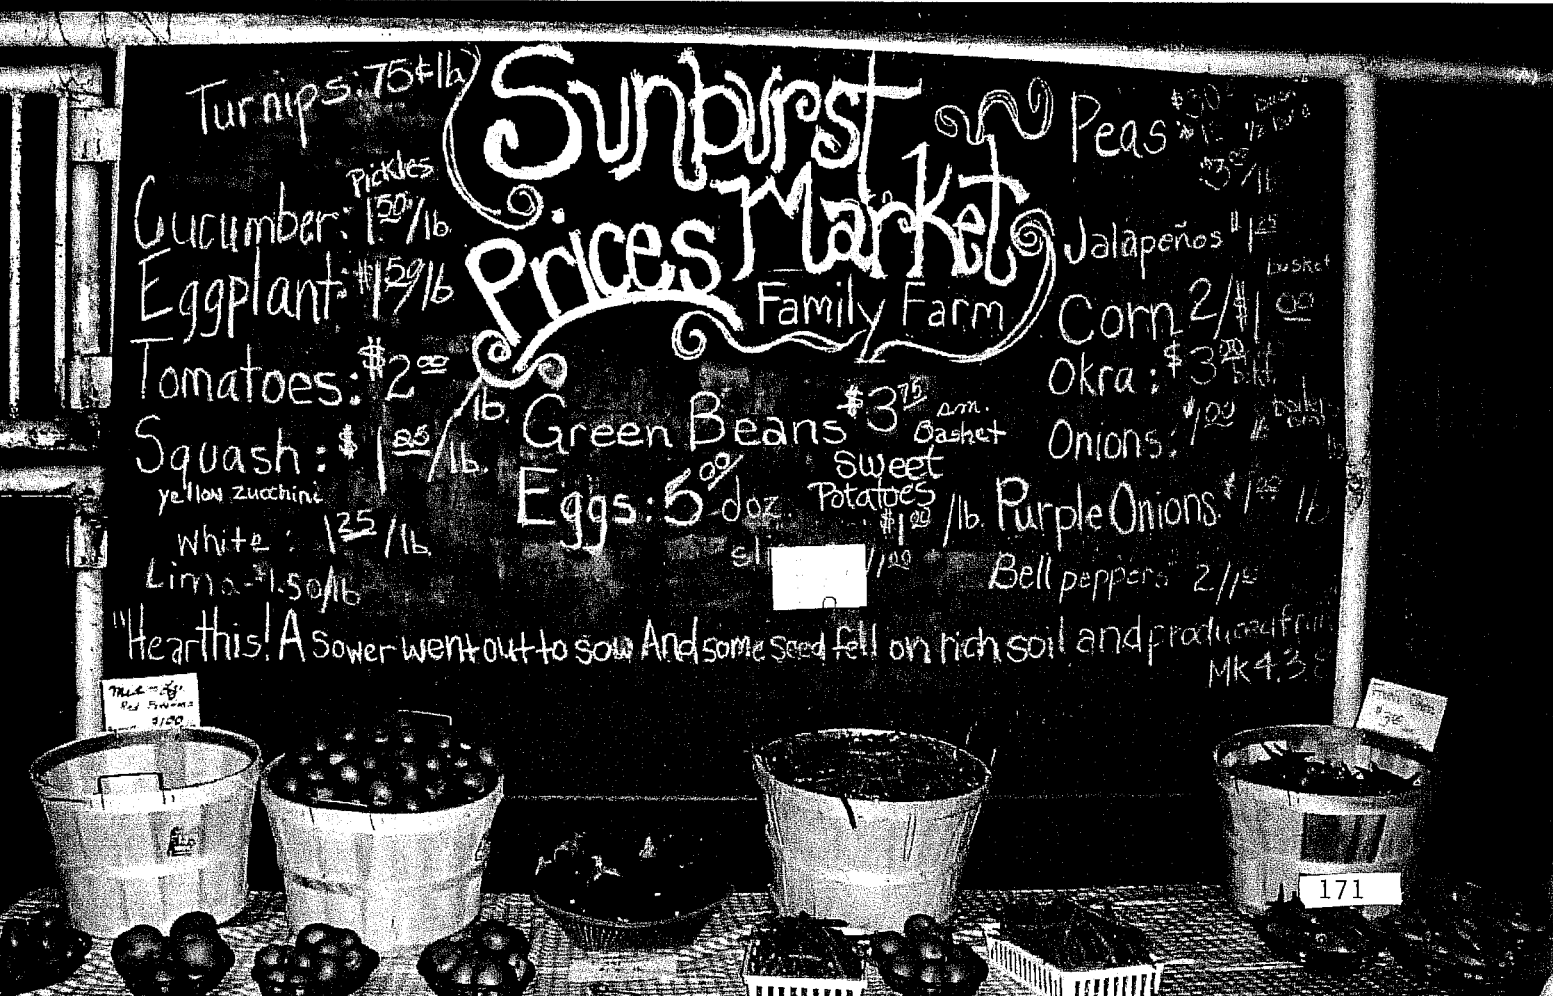 Sunburst
Market
Prices
Family Farm
Turnips: 75¢ lb
Pickles
Cucumber: 1.50/lb.
Eggplant: $1.50/lb
Tomatoes: $2.00
lb.
Squash: $1.25/lb.
yellow zucchini
white: 1.25/lb
Lima - $1.50/lb
Green Beans $3.75 sm.
Basket
Eggs: 5.00 doz.
sweet
Potatoes
$1.00/lb.
1.00
Peas
$3.00/lb
Jalapeños $1.25
basket
Corn 2/$1.00
Okra: $3.00 bkt.
Onions: $1.00
Purple Onions $1.00 lb
Bell peppers 2/1.00
"Hear this! A sower went out to sow And some seed fell on rich soil and produced fruit
MK 4.3,8
$1.00
171